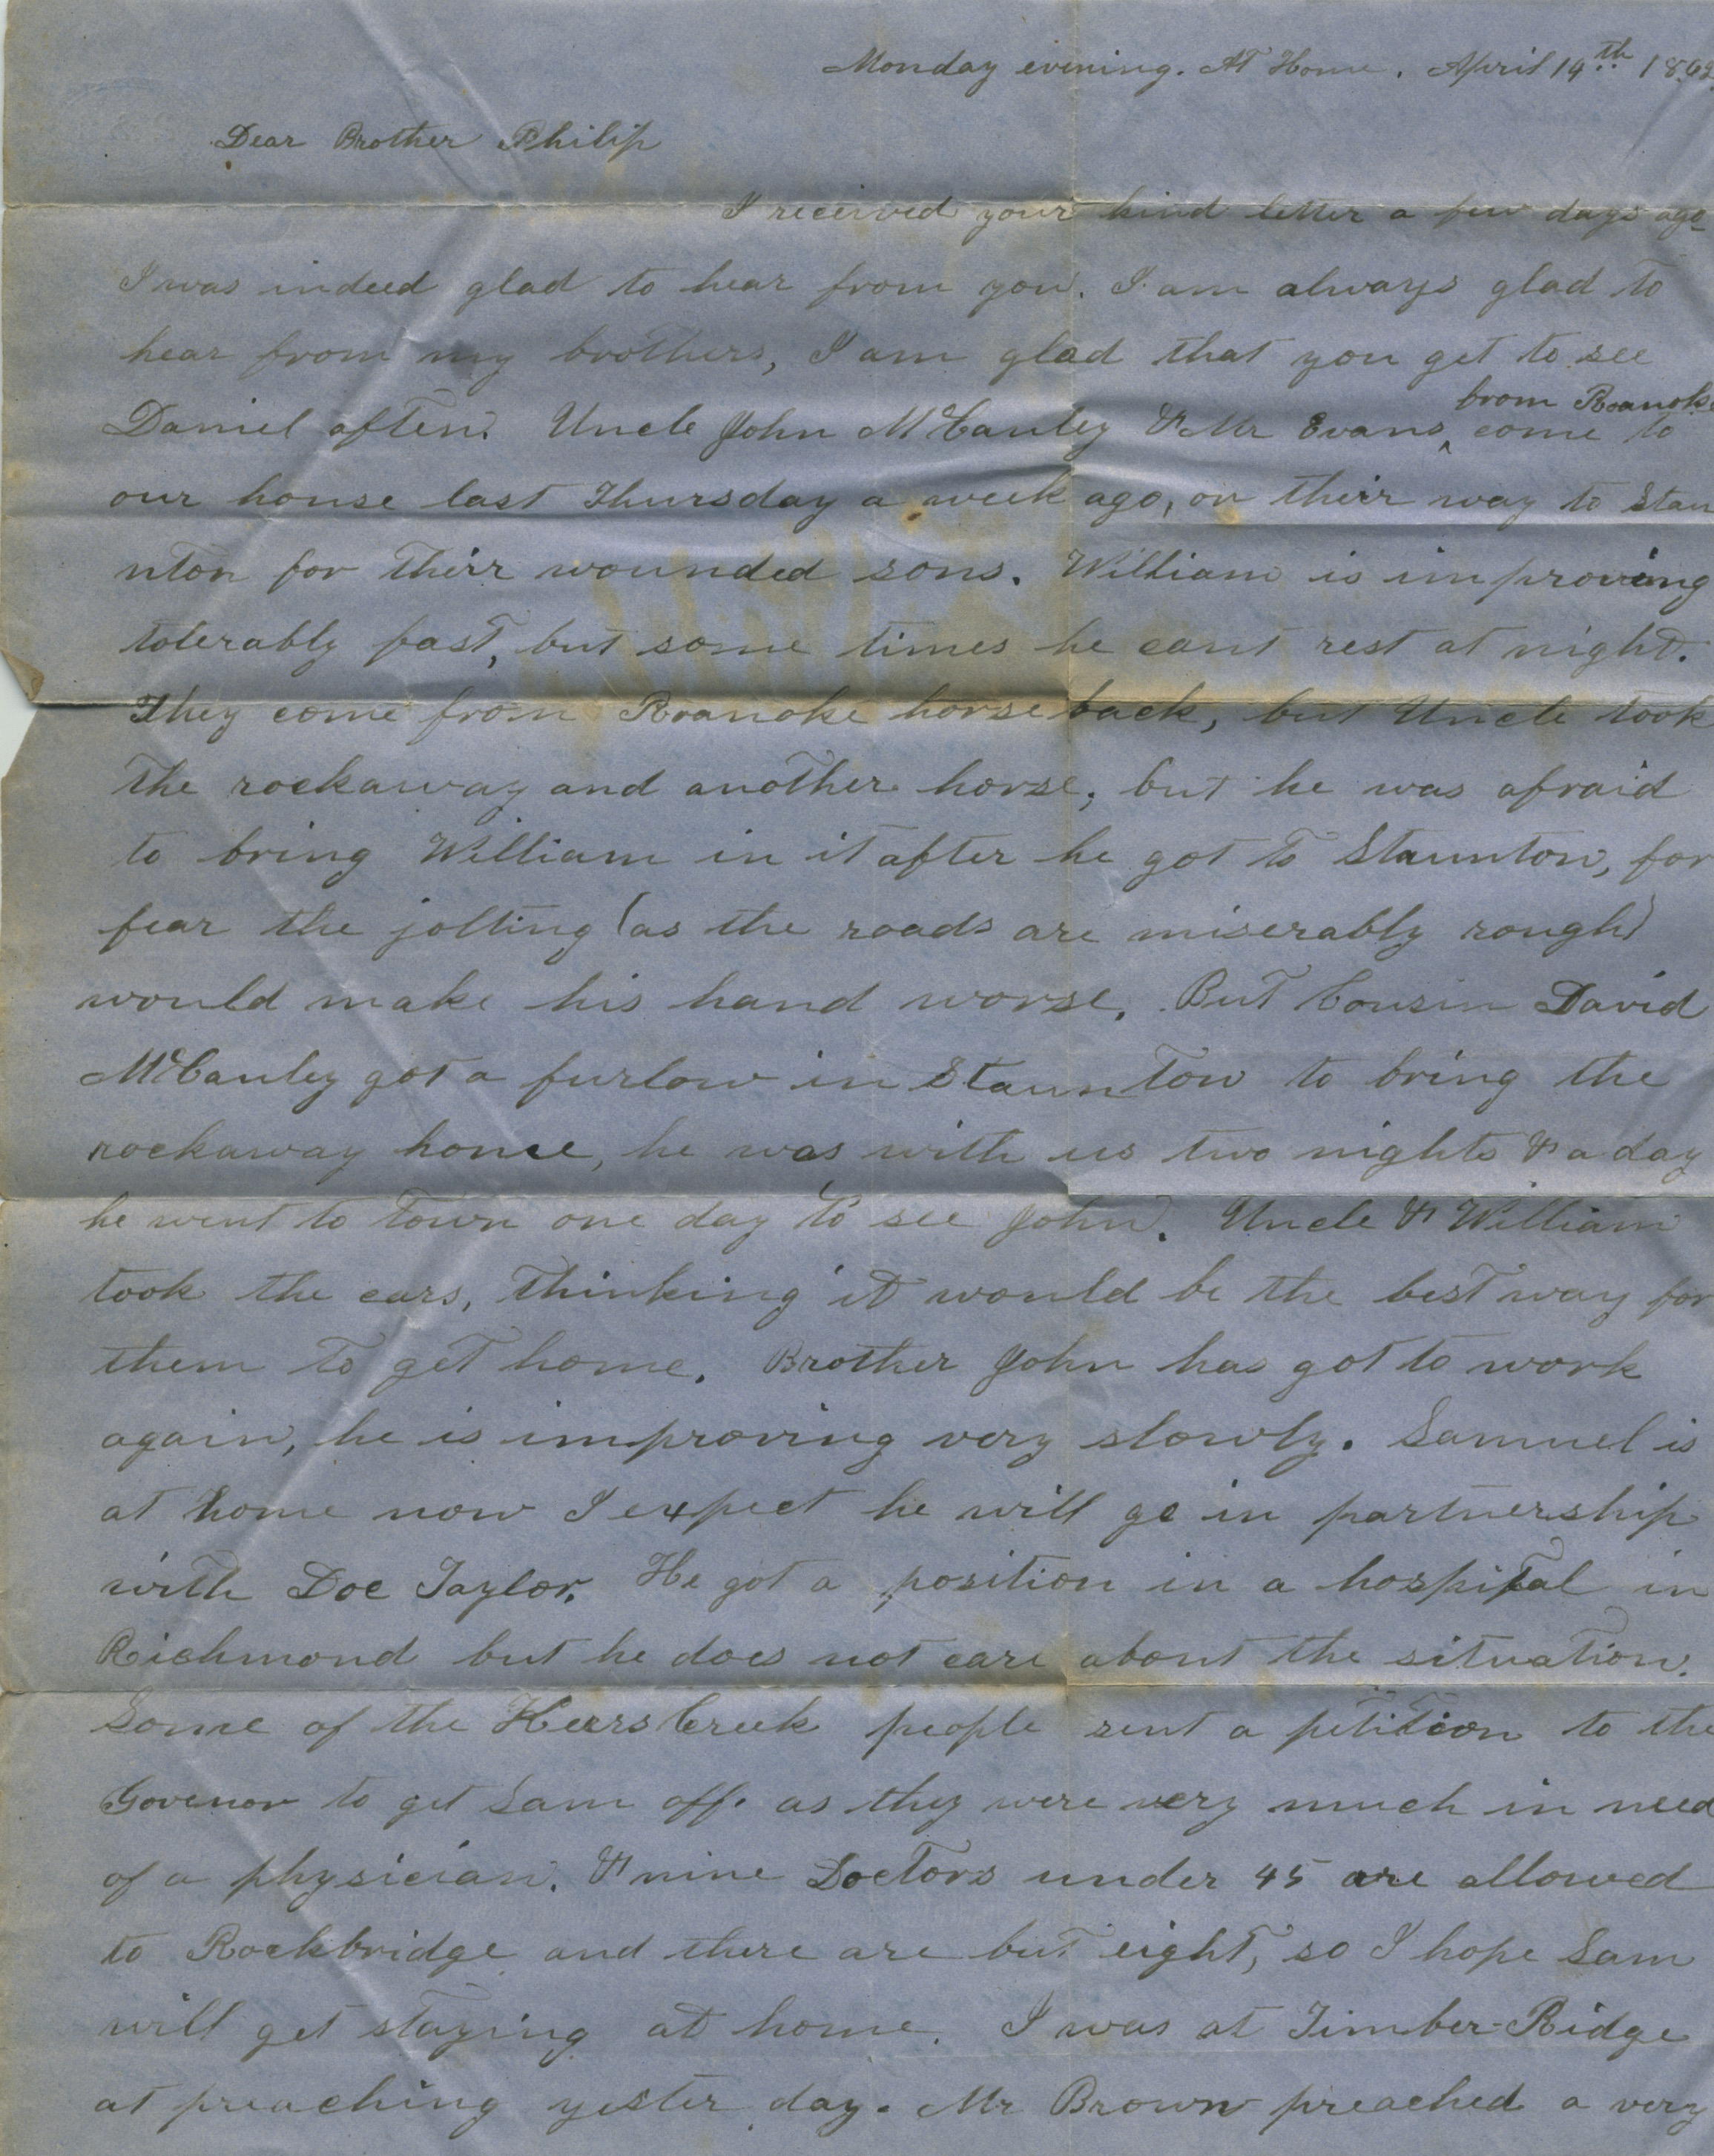 Monday evening. At Home. April 14th 1862
Dear Brother Philip
I received your kind letter a few days ago
I was indeed glad to hear from you. I am always glad to
hear from my brothers, I am glad that you get to see
Daniel often. Uncle John McCauley & Mr Evans ^ from Roanoke come to
our house last Thursday a week ago, on their way to Stau
nton for their wounded sons. William is improving
tolerably fast, but some times he cant rest at night.
They come from Roanoke horse back, but Uncle took
the rockaway and another horse, but he was afraid
to bring William in it after he got to Staunton, for
fear the jolting (as the roads are miserably rough)
would make his hand worse. But Cousin David
McCauley got a furlow in Staunton to bring the
rockaway home, he was with us two nights & a day
he went to town one day to see John. Uncle & William
took the cars, thinking it would be the best way for
them to get home. Brother John has got to work
again, he is improving very slowly. Samuel is
at home now I expect he will go in partnership
with Doc Taylor. He got a position in a hospital in
Richmond but he does not care about the situation.
Some of the Keers Creek people sent a petition to the
Govenor to get Sam off. as they were very much in need
of a physician. & nine Doctors under 45 are allowed
to Rockbridge and there are but eight, so I hope Sam
will get staying at home. I was at Timber-Ridge
at preaching yester day. Mr Brown preached a very